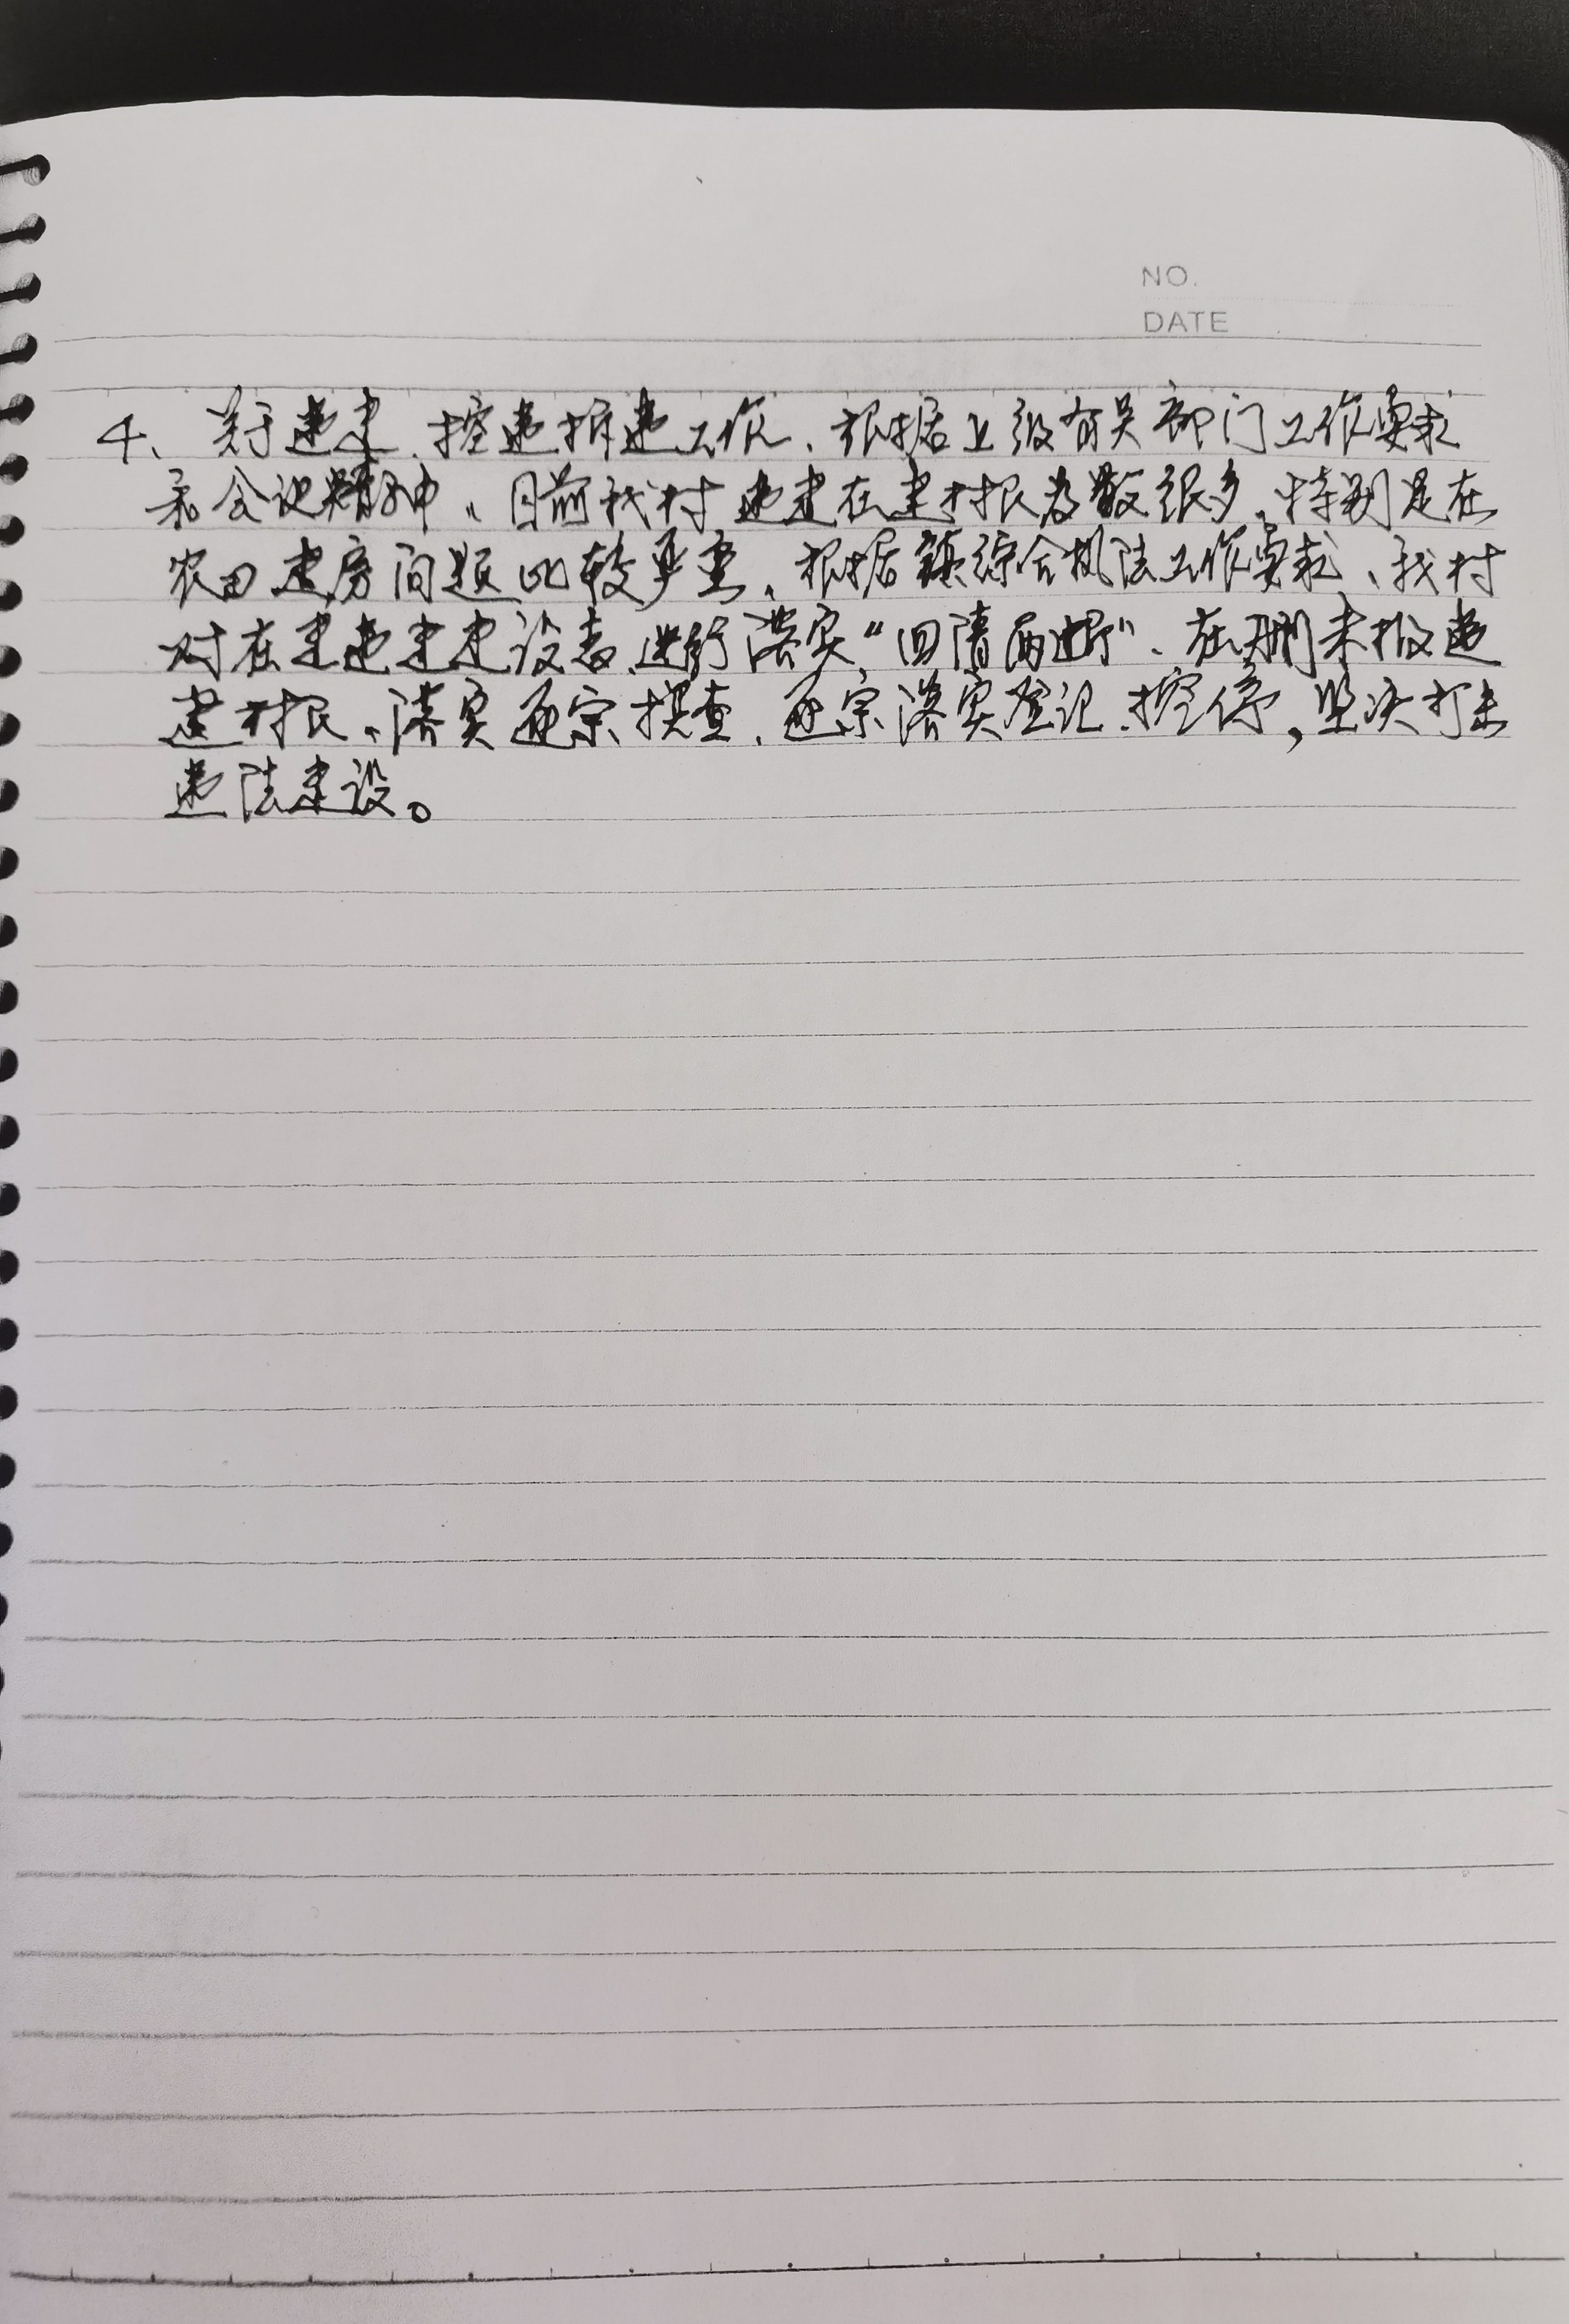 NO.
DATE
4、关于违建、控违拆违工作、根据上级有关部门工作要求
和会议精神、目前我村违建在建村民为数很多、特别是在
农田建房问题比较严重、根据镇综合执法工作要求、我村
对在建违建建设者进行落实“四清两断”、在册未报违
建村民、落实逐宗摸查、逐宗落实登记、控停，坚决打击
违法建设。